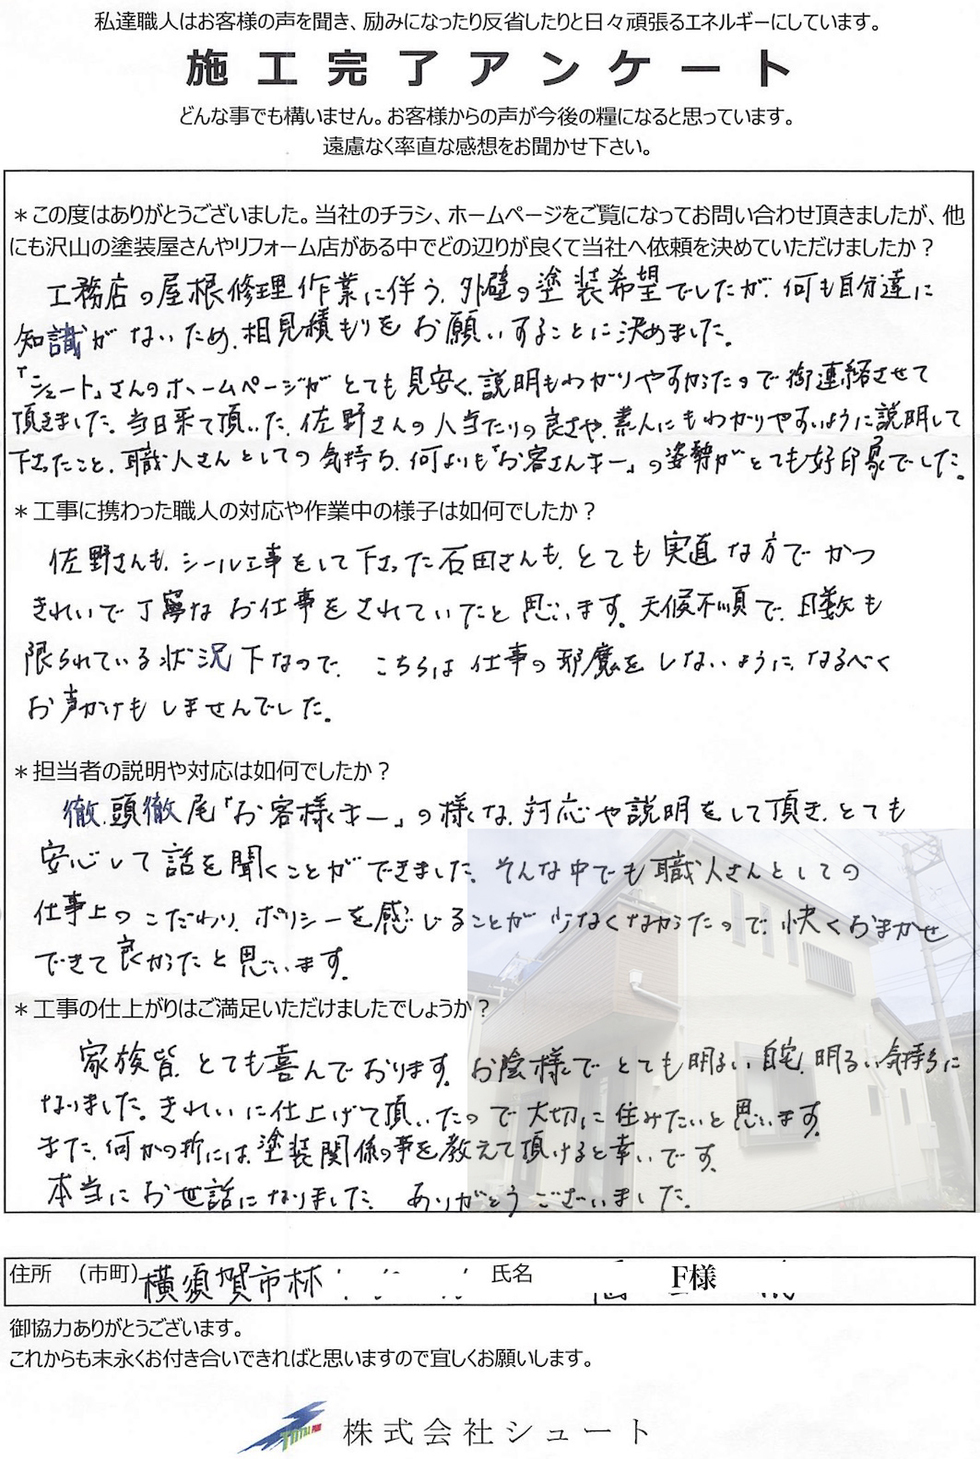 私達職人はお客様の声を聞き、励みになったり反省したりと日々頑張るエネルギーにしています。
施工完了アンケート
どんな事でも構いません。お客様からの声が今後の糧になると思っています。
遠慮なく率直な感想をお聞かせ下さい。
＊この度はありがとうございました。当社のチラシ、ホームページをご覧になってお問い合わせ頂きましたが、他
にも沢山の塗装屋さんやリフォーム店がある中でどの辺りが良くて当社へ依頼を決めていただけましたか？
工務店の屋根修理作業に伴う、外壁の塗装希望でしたが、何も自分達に
知識がないため、相見積もりをお願いすることに決めました。
「シュート」さんのホームページがとても見安く、説明もわかりやすかったので御連絡させて
頂きました。当日来て頂いた、佐野さんの人当たりの良さや、素人にもわかりやすいように説明して
下さったこと、職人さんとしての気持ち、何よりも「お客さん第一」の姿勢がとても好印象でした。
＊工事に携わった職人の対応や作業中の様子は如何でしたか？
佐野さんも、シール工事をして下さった石田さんも、とても実直な方でかつ
きれいで丁寧なお仕事をされていたと思います。天候不順で、日数も
限られている状況下なので、こちらは仕事の邪魔をしないように、なるべく
お声かけもしませんでした。
＊担当者の説明や対応は如何でしたか？
徹頭徹尾「お客様第一」の様な、対応や説明をして頂き、とても
安心して話を聞くことができました。そんな中でも職人さんとしての
仕事上のこだわり、ポリシーを感じることが少なくなかったので、快くおまかせ
できて良かったと思います。
＊工事の仕上がりはご満足いただけましたでしょうか？
家族皆、とても喜んでおります。お陰様でとても明るい自宅、明るい気持ちに
なりました。きれいに仕上げて頂いたので大切に住みたいと思います。
また、何かの折には、塗装関係の事を教えて頂けると幸いです。
本当にお世話になりました。ありがとうございました。
住所 （市町） 横須賀市林 氏名 F様
御協力ありがとうございます。
これからも末永くお付き合いできればと思いますので宜しくお願いします。
株式会社シュート